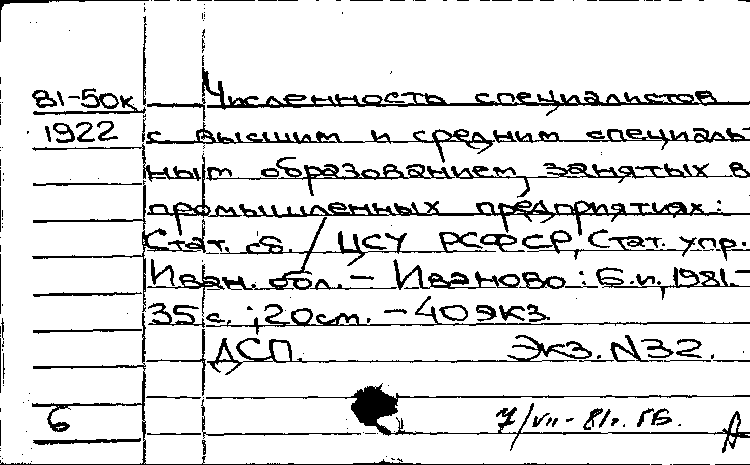 81-50к Численность специалистов
1922 с высшим и средним специаль
ным образованием, занятых в
промышленных предприятиях:
Стат. сб. / ЦСУ РСФСР, Стат. упр.
Иван. обл. – Иваново: Б.и, 1981.–
35 с.; 20 см. – 40 экз.
ДСП. Экз. N32.
6 7/VII-81г. ГБ.